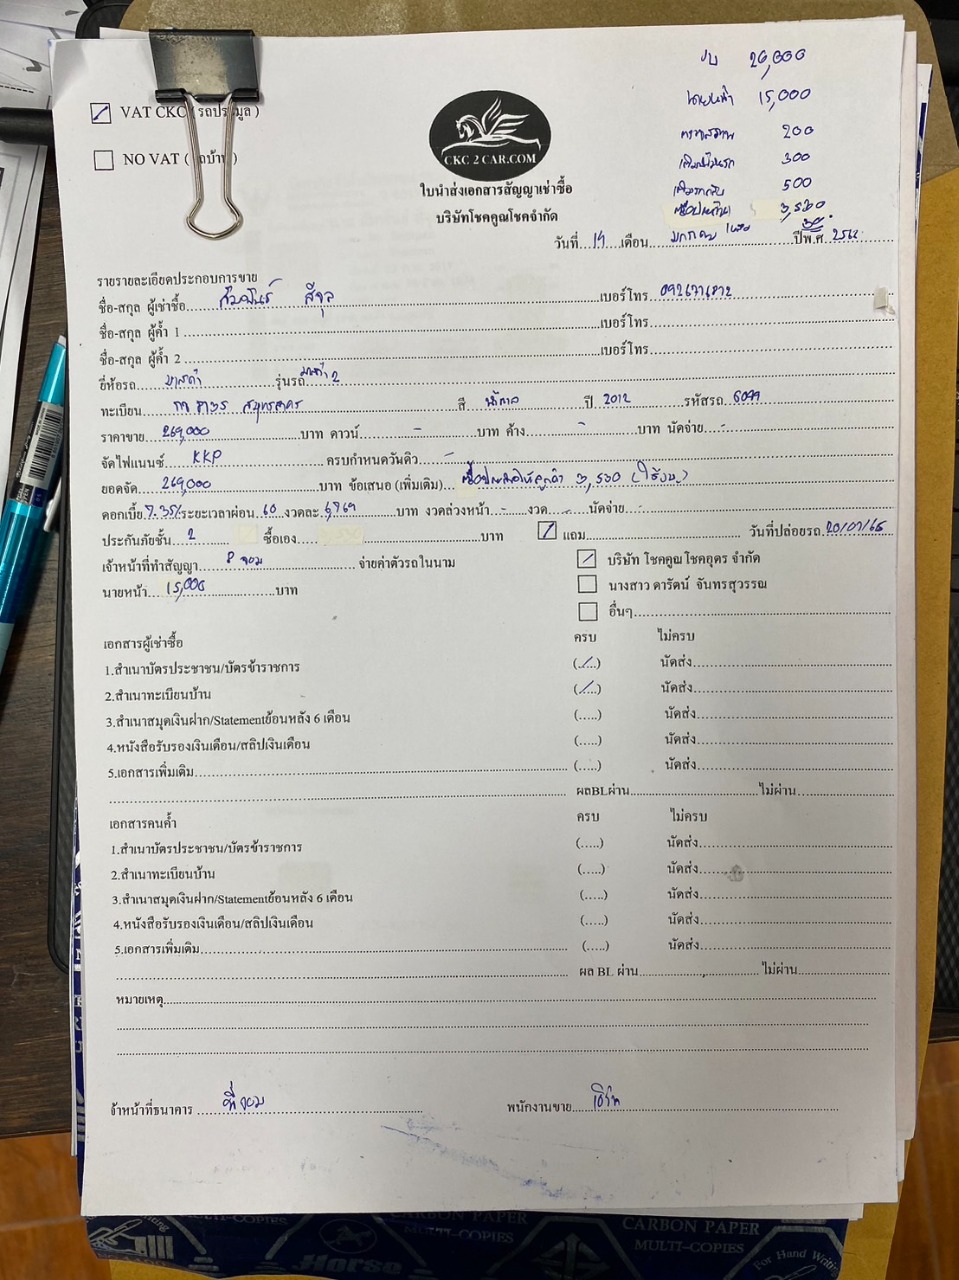 งบ 20,000
นายหน้า 15,000
200
300
500
3,500
VAT CKC ( รถประมูล )
NO VAT ( รถบ้าน )
CKC 2 CAR.COM
ใบนำส่งเอกสารสัญญาเช่าซื้อ
บริษัทโชคคูณโชคจำกัด
วันที่ 19 เดือน มกราคม ปีพ.ศ.
รายรายละเอียดประกอบการขาย
ชื่อ-สกุล ผู้เช่าซื้อ เบอร์โทร
ชื่อ-สกุล ผู้ค้ำ 1 เบอร์โทร
ชื่อ-สกุล ผู้ค้ำ 2 เบอร์โทร
ยี่ห้อรถ มาสด้า รุ่นรถ มาสด้า 2
ทะเบียน สมุทรสาคร สี ปี 2012 รหัสรถ 6099
ราคาขาย 269,000 บาท ดาวน์ - บาท ค้าง - บาท นัดจ่าย -
จัดไฟแนนซ์ KKP ครบกำหนดวันดิว -
ยอดจัด 269,000 บาท ข้อเสนอ (เพิ่มเติม) 3,500
ดอกเบี้ย 7.35% ระยะเวลาผ่อน 60 งวดละ บาท งวดล่วงหน้า - งวด - นัดจ่าย -
ประกันภัยชั้น 2 ซื้อเอง บาท แถม วันที่ปล่อยรถ 20/01/65
เจ้าหน้าที่ทำสัญญา จ่ายค่าตัวรถในนาม บริษัท โชคคูณโชคอุตร จำกัด
นายหน้า 15,000 บาท นางสาว ดารัตน์ จันทรสุวรรณ
อื่นๆ
เอกสารผู้เช่าซื้อ ครบ ไม่ครบ
1.สำเนาบัตรประชาชน/บัตรข้าราชการ (../..) นัดส่ง
2.สำเนาทะเบียนบ้าน (../..) นัดส่ง
3.สำเนาสมุดเงินฝาก/Statementย้อนหลัง 6 เดือน (.....) นัดส่ง
4.หนังสือรับรองเงินเดือน/สลิปเงินเดือน (.....) นัดส่ง
5.เอกสารเพิ่มเติม (.....) นัดส่ง
ผลBLผ่าน ไม่ผ่าน
เอกสารคนค้ำ ครบ ไม่ครบ
1.สำเนาบัตรประชาชน/บัตรข้าราชการ (.....) นัดส่ง
2.สำเนาทะเบียนบ้าน (.....) นัดส่ง
3.สำเนาสมุดเงินฝาก/Statementย้อนหลัง 6 เดือน (.....) นัดส่ง
4.หนังสือรับรองเงินเดือน/สลิปเงินเดือน (.....) นัดส่ง
5.เอกสารเพิ่มเติม (.....) นัดส่ง
ผล BL ผ่าน ไม่ผ่าน
หมายเหตุ
จ้าหน้าที่ธนาคาร พนักงานขาย
MULTI-COPIES
Horse
CARBON PAPER
MULTI-COPIES
For Hand Writing